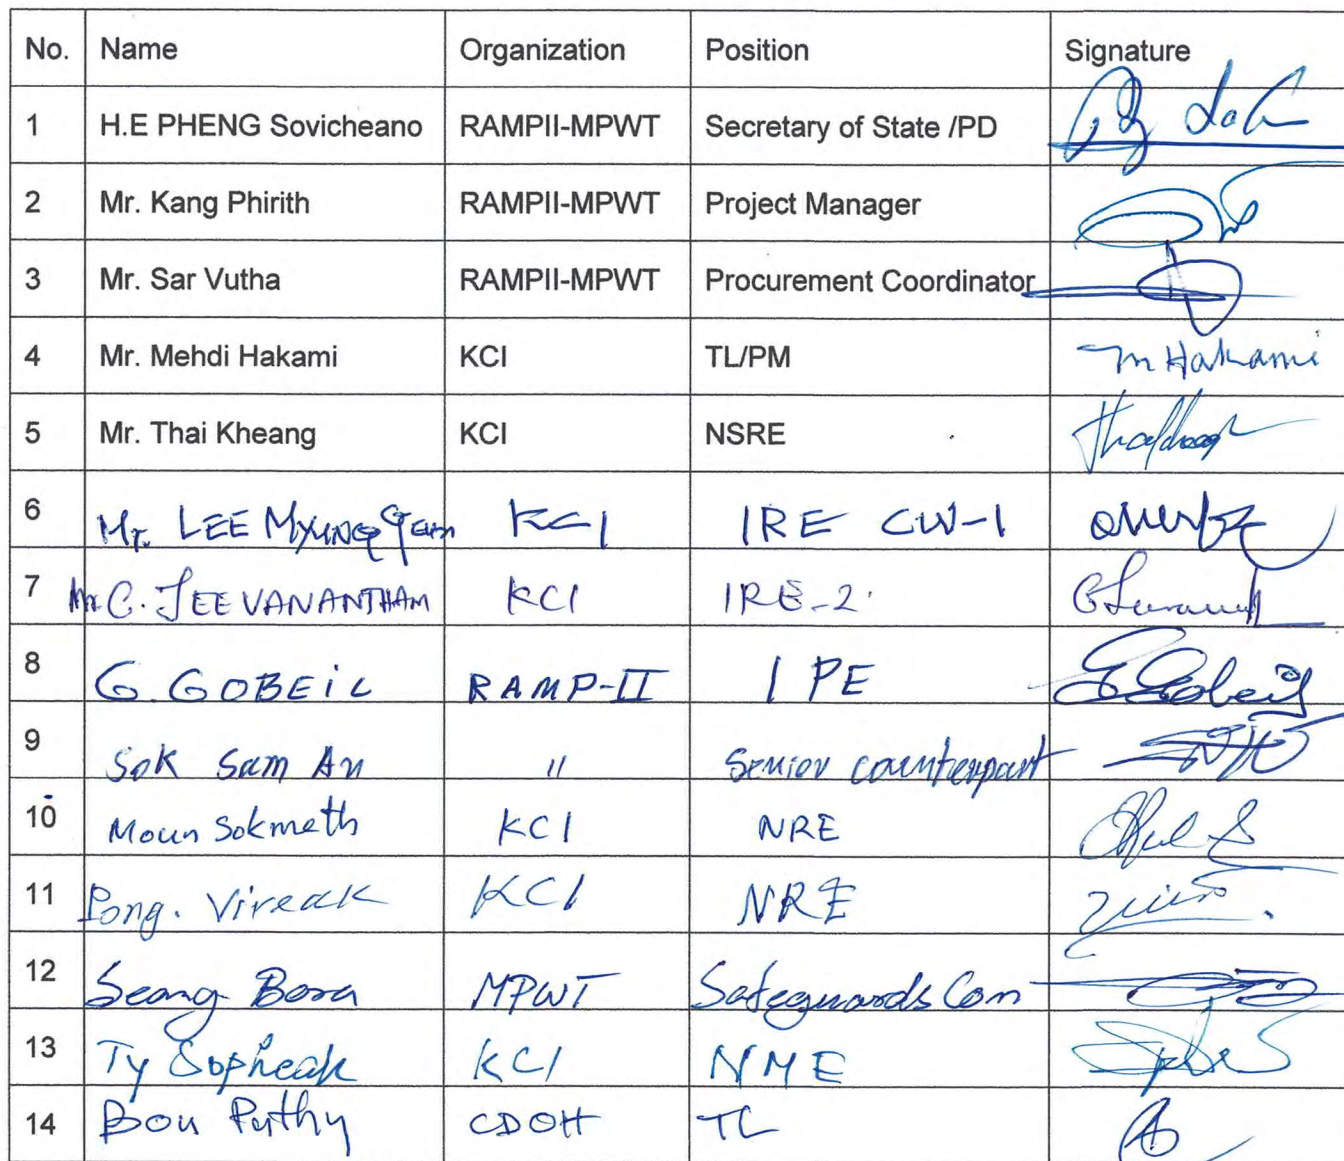 No. Name Organization Position Signature
1 H.E PHENG Sovicheano RAMPII-MPWT Secretary of State /PD
2 Mr. Kang Phirith RAMPII-MPWT Project Manager
3 Mr. Sar Vutha RAMPII-MPWT Procurement Coordinator
4 Mr. Mehdi Hakami KCI TL/PM M Hakami
5 Mr. Thai Kheang KCI NSRE
6 Mr. LEE KCI IRE CW-1
7 Mr C. JEEVANANTHAM KCI IRE-2.
8 G. GOBEIL RAMP-II IPE G Gobeil
9 Sok Sam An " Senior counterpart
10 Moun Sokmeth KCI NRE
11 Pong. Vireak KCI NRE
12 Seang Bora MPWT Safeguards Con
13 Ty Sopheak KCI NME
14 Bou Puthy CDOH TL